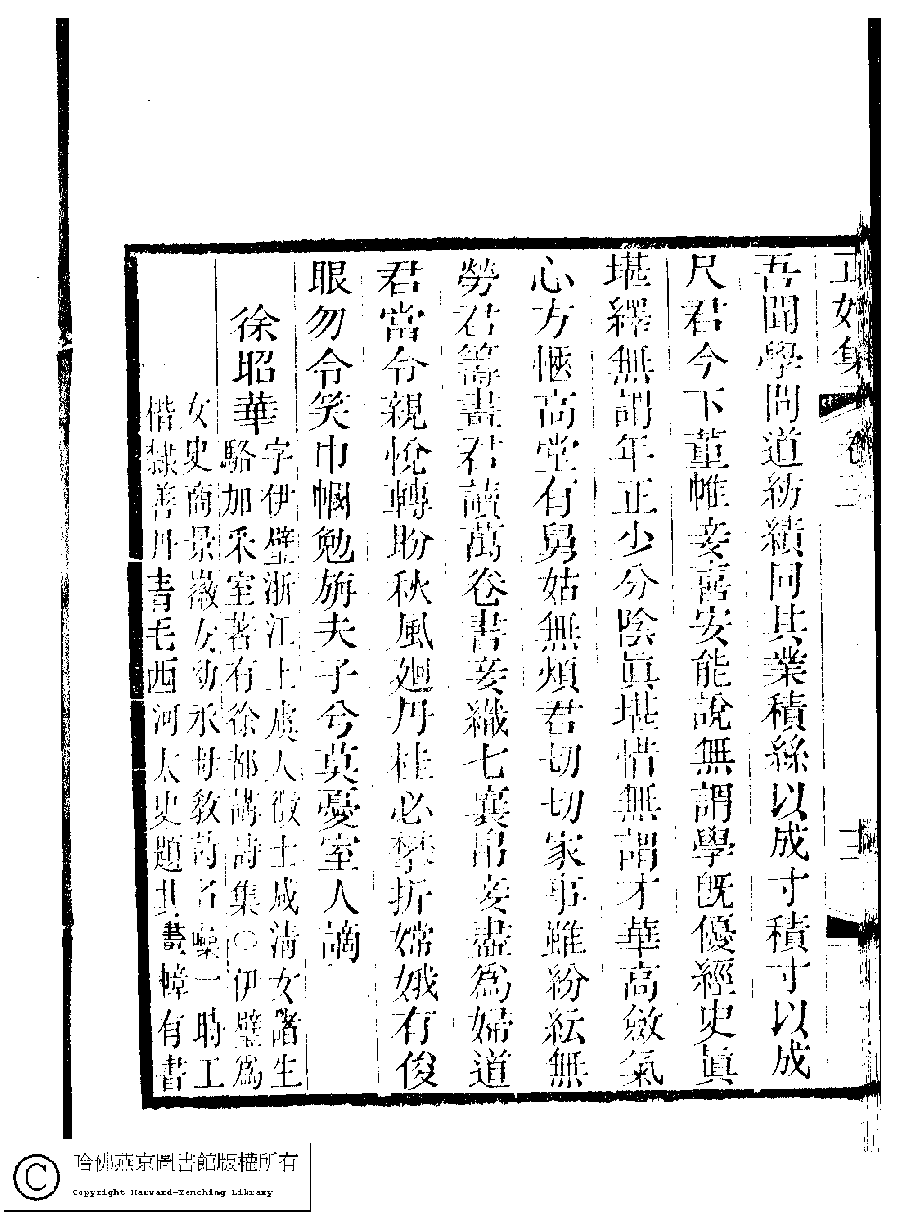 正始集 卷三 十二
吾聞學問道紡績同其業積絲以成寸積寸以成
尺君今下董帷妾喜安能說無謂學旣優經史眞
堪繹無謂年正少分陰眞堪惜無謂才華高斂氣
心方愜高堂有舅姑無煩君切切家事雖紛紜無
勞君籌畫君讀萬卷書妾織七襄帛妾盡爲婦道
君當令親悅轉盼秋風廻丹桂必攀折嫦娥有俊
眼勿令笑巾幗勉旃夫子兮莫憂室人謫
徐昭華
字伊璧浙江上虞人徵士咸清女諸生
駱加采室著有徐都講詩集〇伊璧爲
女史商景徽女幼承母敎詩名噪一時工
楷隸善丹青毛西河太史題其畫幛有書
哈佛燕京圖書館版權所有
Copyright Harvard-Yenching Library